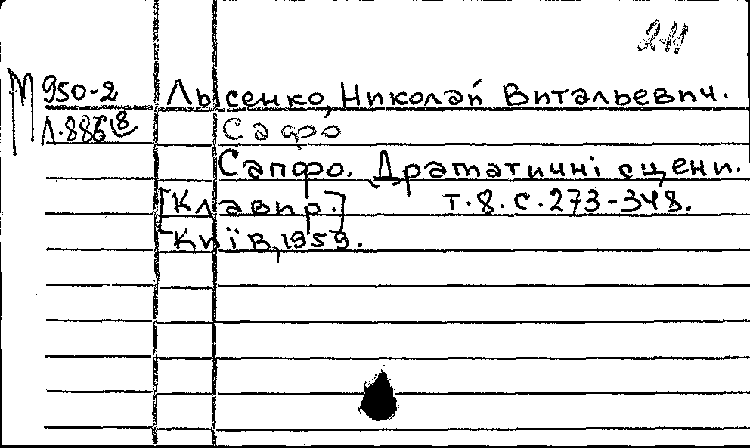 211
М 950-2 Лысенко, Николай Витальевич.
Л.886 Сафо
Сапфо. Драматичні сцени.
[Клавир.] т.8. с.273-348.
Київ, 1959.